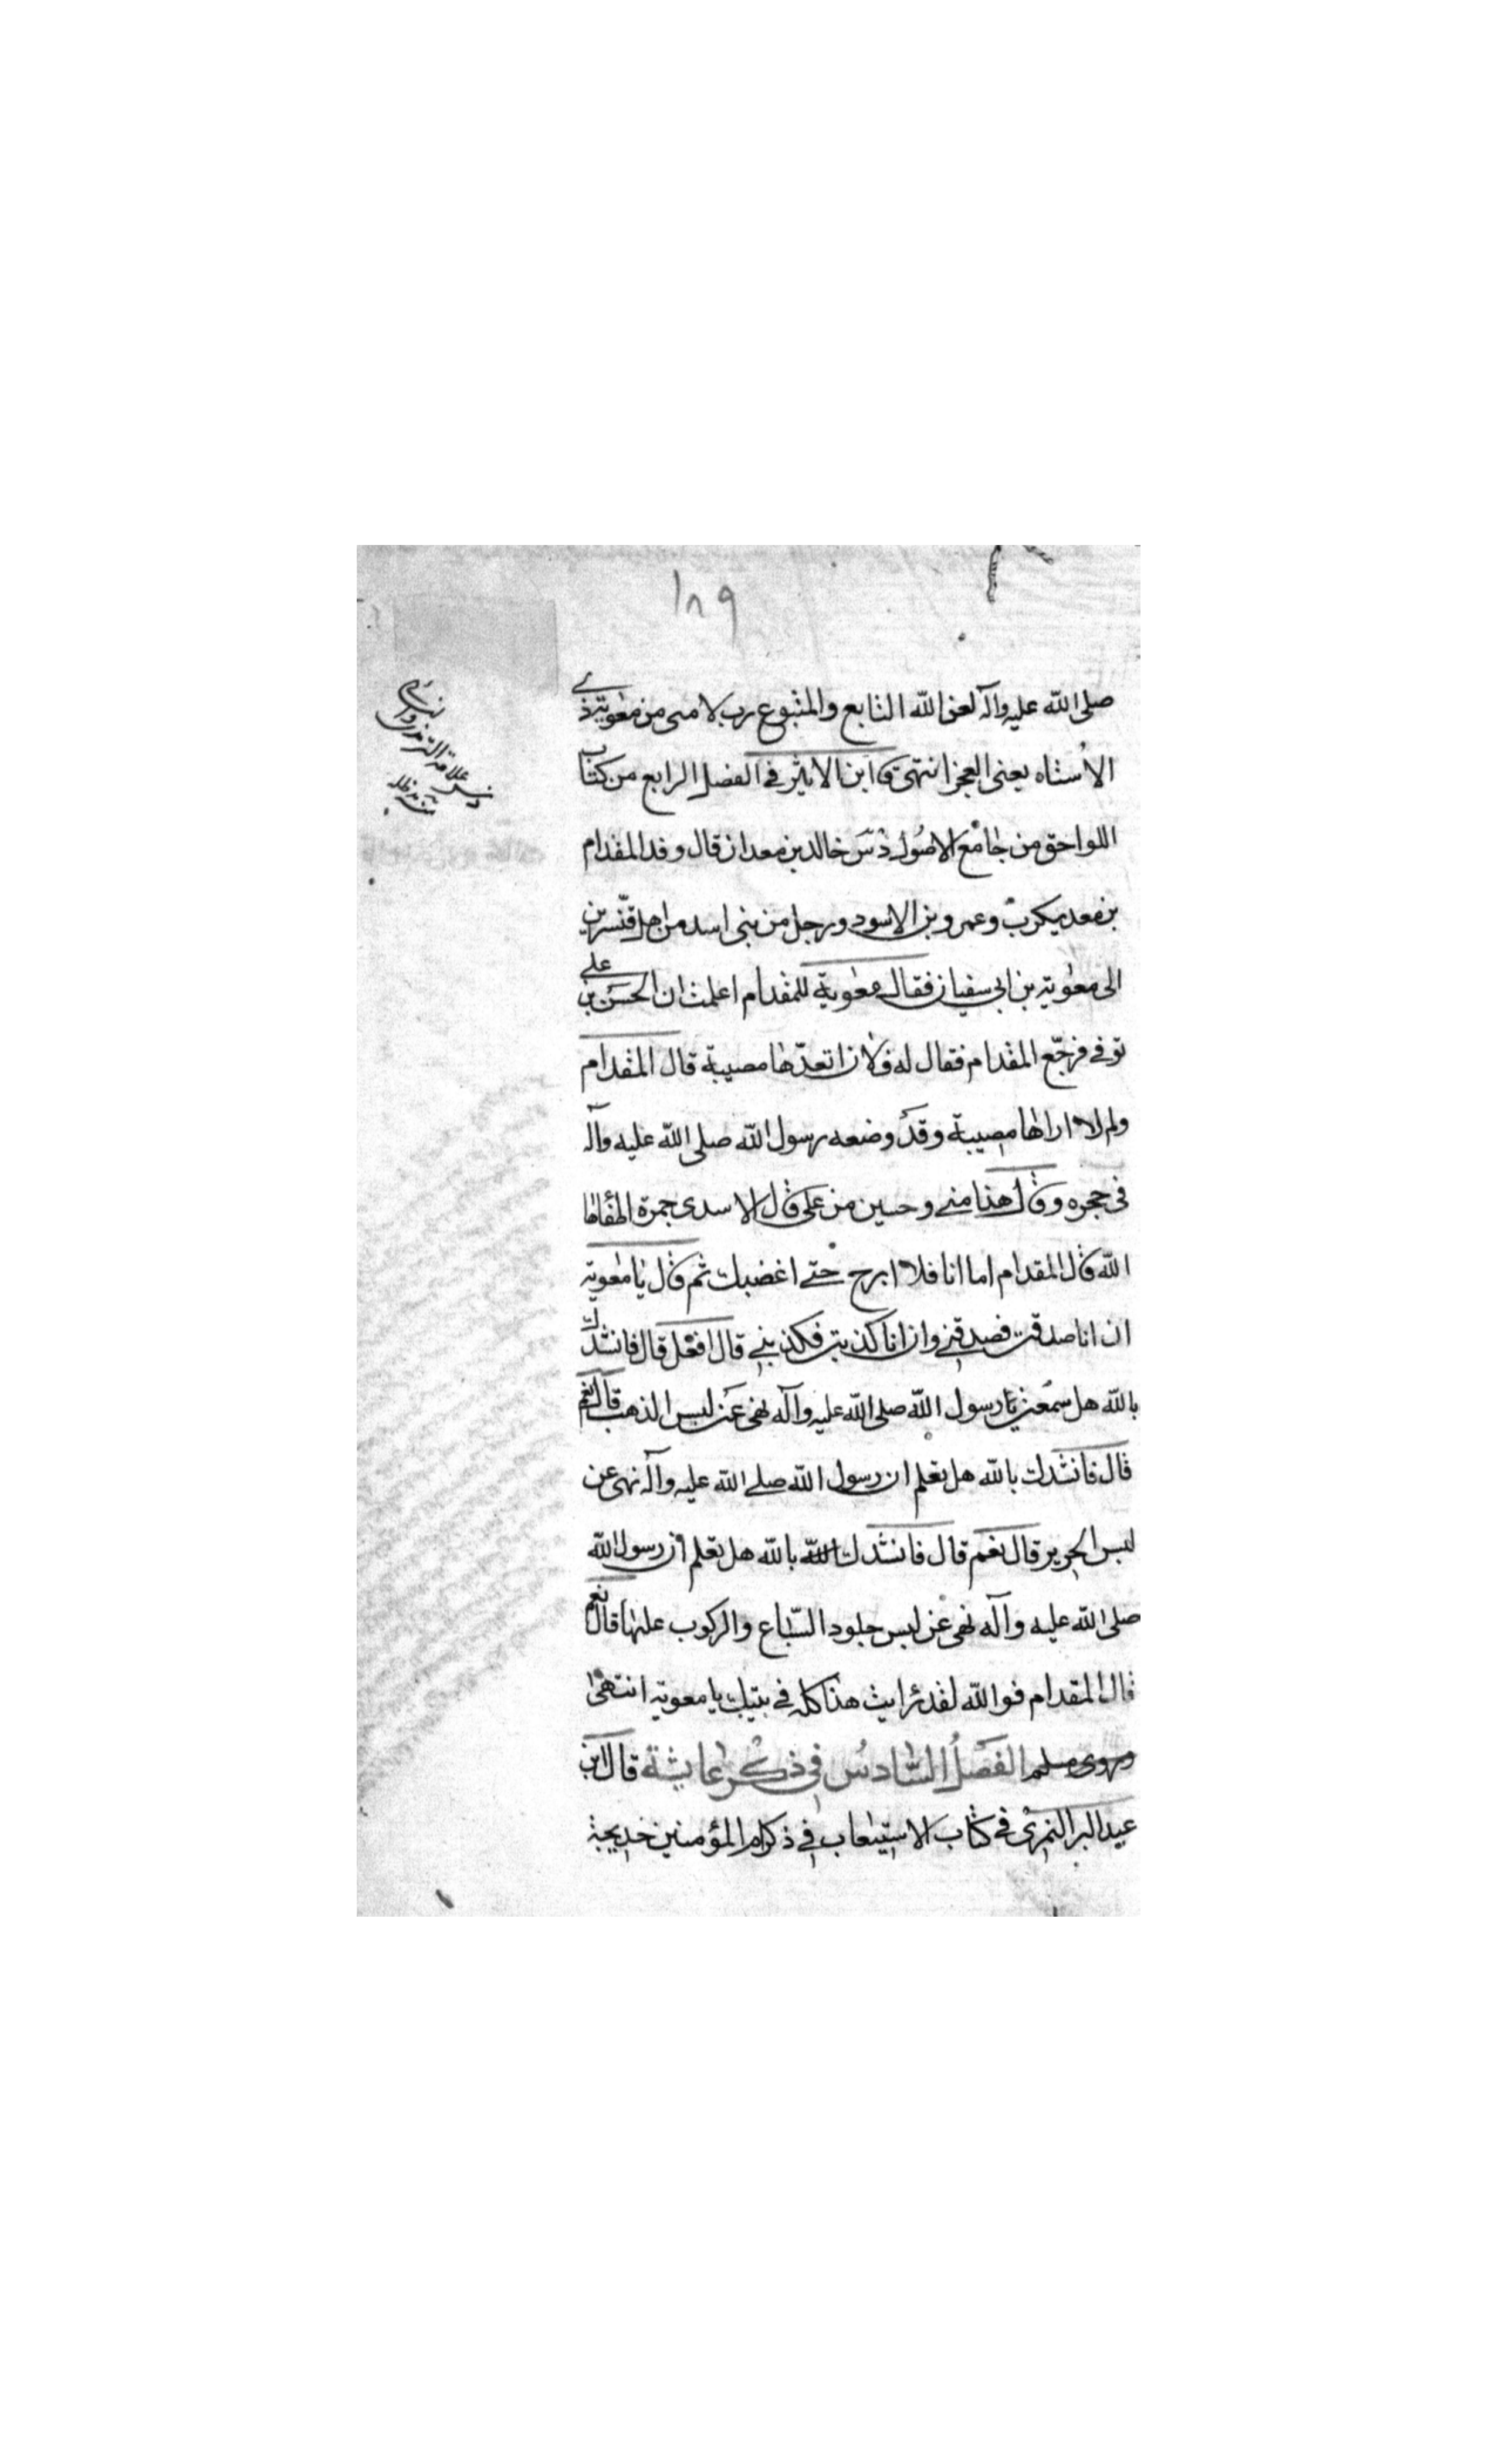 ١٨٩
صلى الله عليه وآله لعن الله التابع والمتبوع رب لامتى من معوية ذى
الأستاه يعنى العجز انتهى قا ابن الاثير فى الفصل الرابع من كتاب
اللواحق من جامع الاصول دس خالد بن معدان قال وفد المقدام
بن معد يكرب وعمرو بن الاسود ورجل من بنى اسد من اهل قنّسرين
الى معوية بن ابى سفيان فقال معوية للمقدام اعلمت ان الحسن بن على
توفى فرجّع المقدام فقال له فلان اتعدّها مصيبة قال المقدام
ولم لا اراها مصيبة وقد وضعه رسول الله صلى الله عليه وآله
فى حجره وقال هذا منى وحسين من على قال الاسدى جمرة اطفأها
الله قال المقدام اما انا فلا ابرح حتى اغضبك ثم قال يا معوية
ان انا صدقت فصدقنى وان انا كذبت فكذبنى قال افعل قال فانشدك
بالله هل سمعت رسول الله صلى الله عليه وآله نهى عن لبس الذهب قال نعم
قال فانشدك بالله هل تعلم ان رسول الله صلى الله عليه وآله نهى عن
لبس الحرير قال نعم قال فانشدك بالله هل تعلم ان رسول الله
صلى الله عليه وآله نهى عن لبس جلود السّباع والركوب عليها قال نعم
قال المقدام فوالله لقد رايت هذا كله فى بيتك يا معوية انتهى
وروى مسلم الفصل السّادس فى ذكر عايشة قال ابن
عبد البر النمرى فى كتاب الاستيعاب فى ذكر ام المؤمنين خديجة